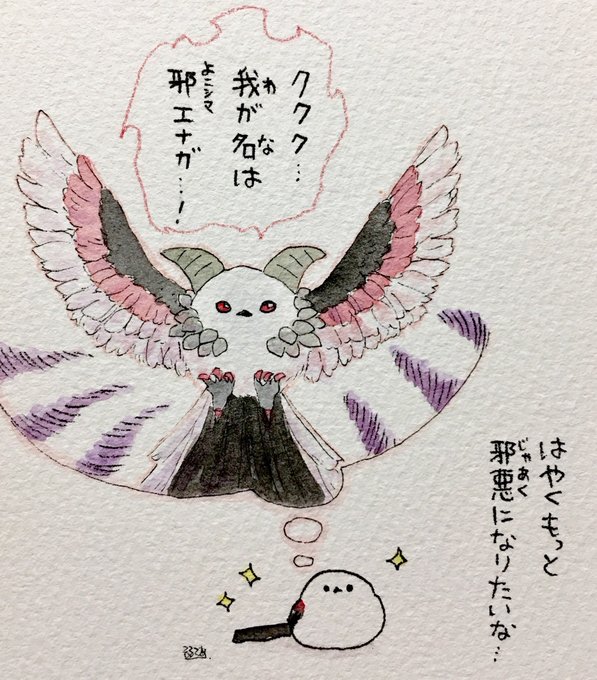 ククク…
我が名は
わ な
邪エナガ…!
よこシマ
はやくもっと
邪悪になりたいな…
じゃあく